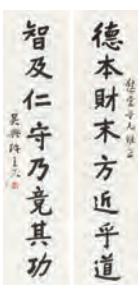 德本財末方近乎道
智及仁守乃竟其功